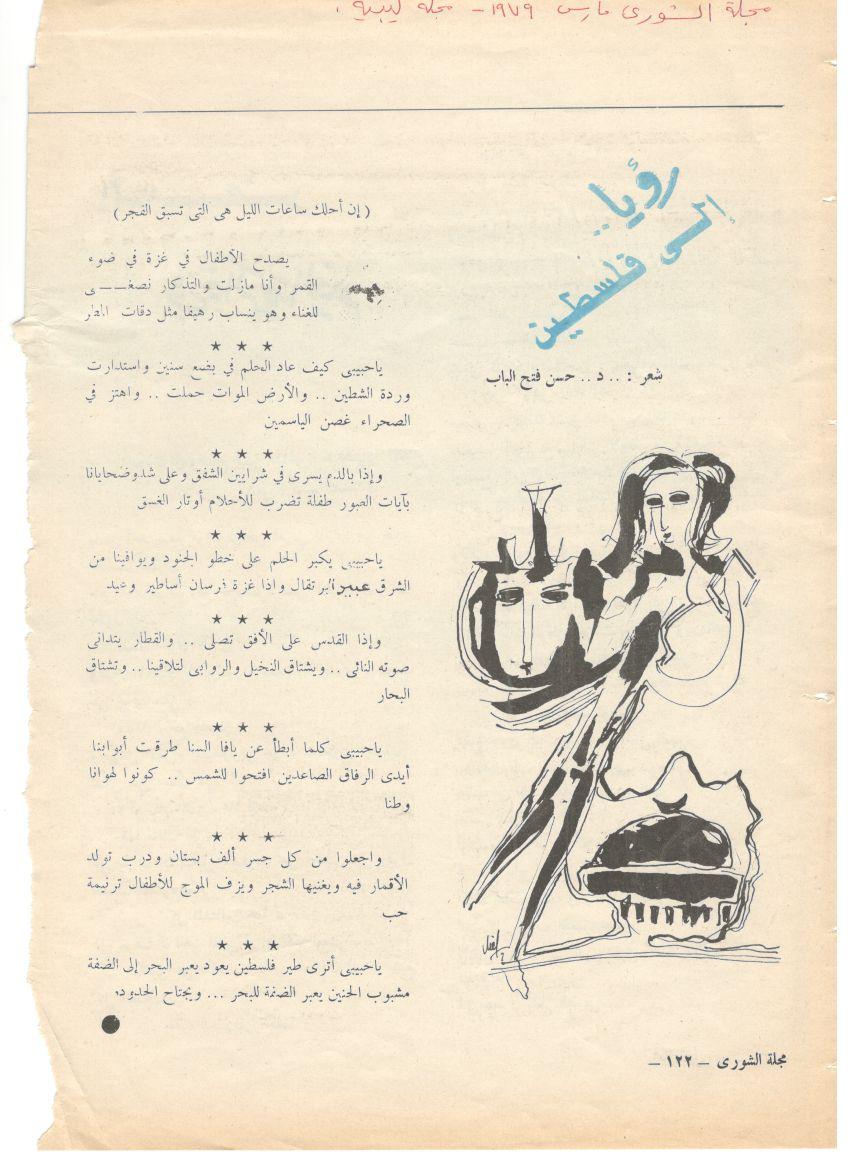 مجلة الشورى مارس ١٩٧٩ - مجلة ليبية .
رؤيا
إلى فلسطين
شعر : .. د .. حسن فتح الباب
( إن أحلك ساعات الليل هى التى تسبق الفجر )
يصدح الأطفال في غزة في ضوء
القمر وأنا مازلت والتذكار نصغــــى
للغناء وهو ينساب رهيفا مثل دقات المطر
★ ★ ★
ياحبيبى كيف عاد الحلم في بضع سنين واستدارت
وردة الشطين .. والأرض الموات حملت .. واهتز في
الصحراء غصن الياسمين
★ ★ ★
وإذا بالدم يسرى في شرايين الشفق وعلى شدوضحايانا
بآيات العبور طفلة تضرب للأحلام أوتار الغسق
★ ★ ★
ياحبيبى يكبر الحلم على خطو الجنود ويوافينا من
الشرق عبير البرتقال واذا غزة فرسان أساطير وعيد
★ ★ ★
وإذا القدس على الأفق تصلى .. والقطار يتدانى
صوته النائى .. ويشتاق النخيل والروابى لتلاقينا .. وتشتاق
البحار
★ ★ ★
ياحبيبى كلما أبطأ عن يافا السنا طرقت أبوابنا
أيدى الرفاق الصاعدين افتحوا للشمس .. كونوا لهوانا
وطنا
★ ★ ★
واجعلوا من كل جسر ألف بستان ودرب تولد
الأقمار فيه ويغنيها الشجر ويزف الموج للأطفال ترنيمة
حب
★ ★ ★
ياحبيبى أترى طير فلسطين يعود يعبر البحر إلى الضفة
مشبوب الحنين يعبر الضفة للبحر ... ويجتاح الحدود
مجلة الشورى – ١٢٢ –